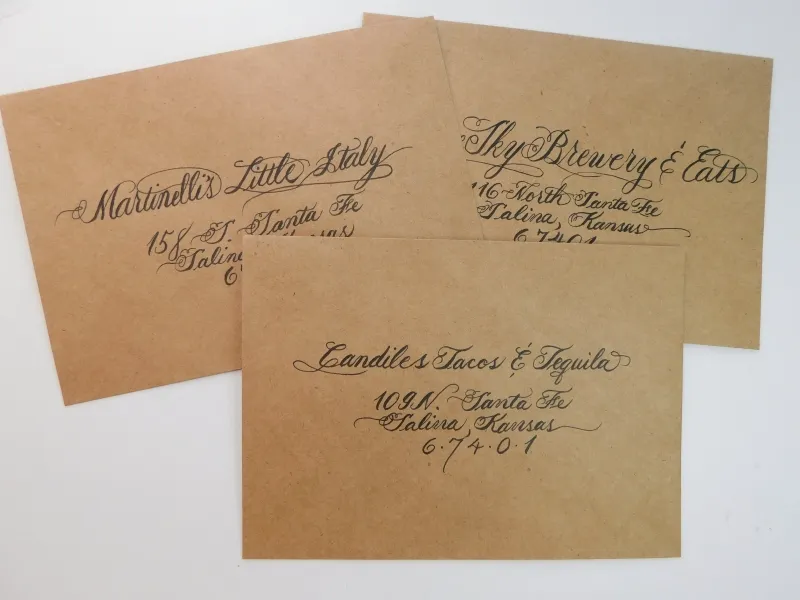 Martinelli's Little Italy
158 S. Santa Fe
Salina
6
Sky Brewery & Eats
116 North Santa Fe
Salina, Kansas
67401
Candiles Tacos & Tequila
109 N. Santa Fe
Salina, Kansas
6·7·4·0·1